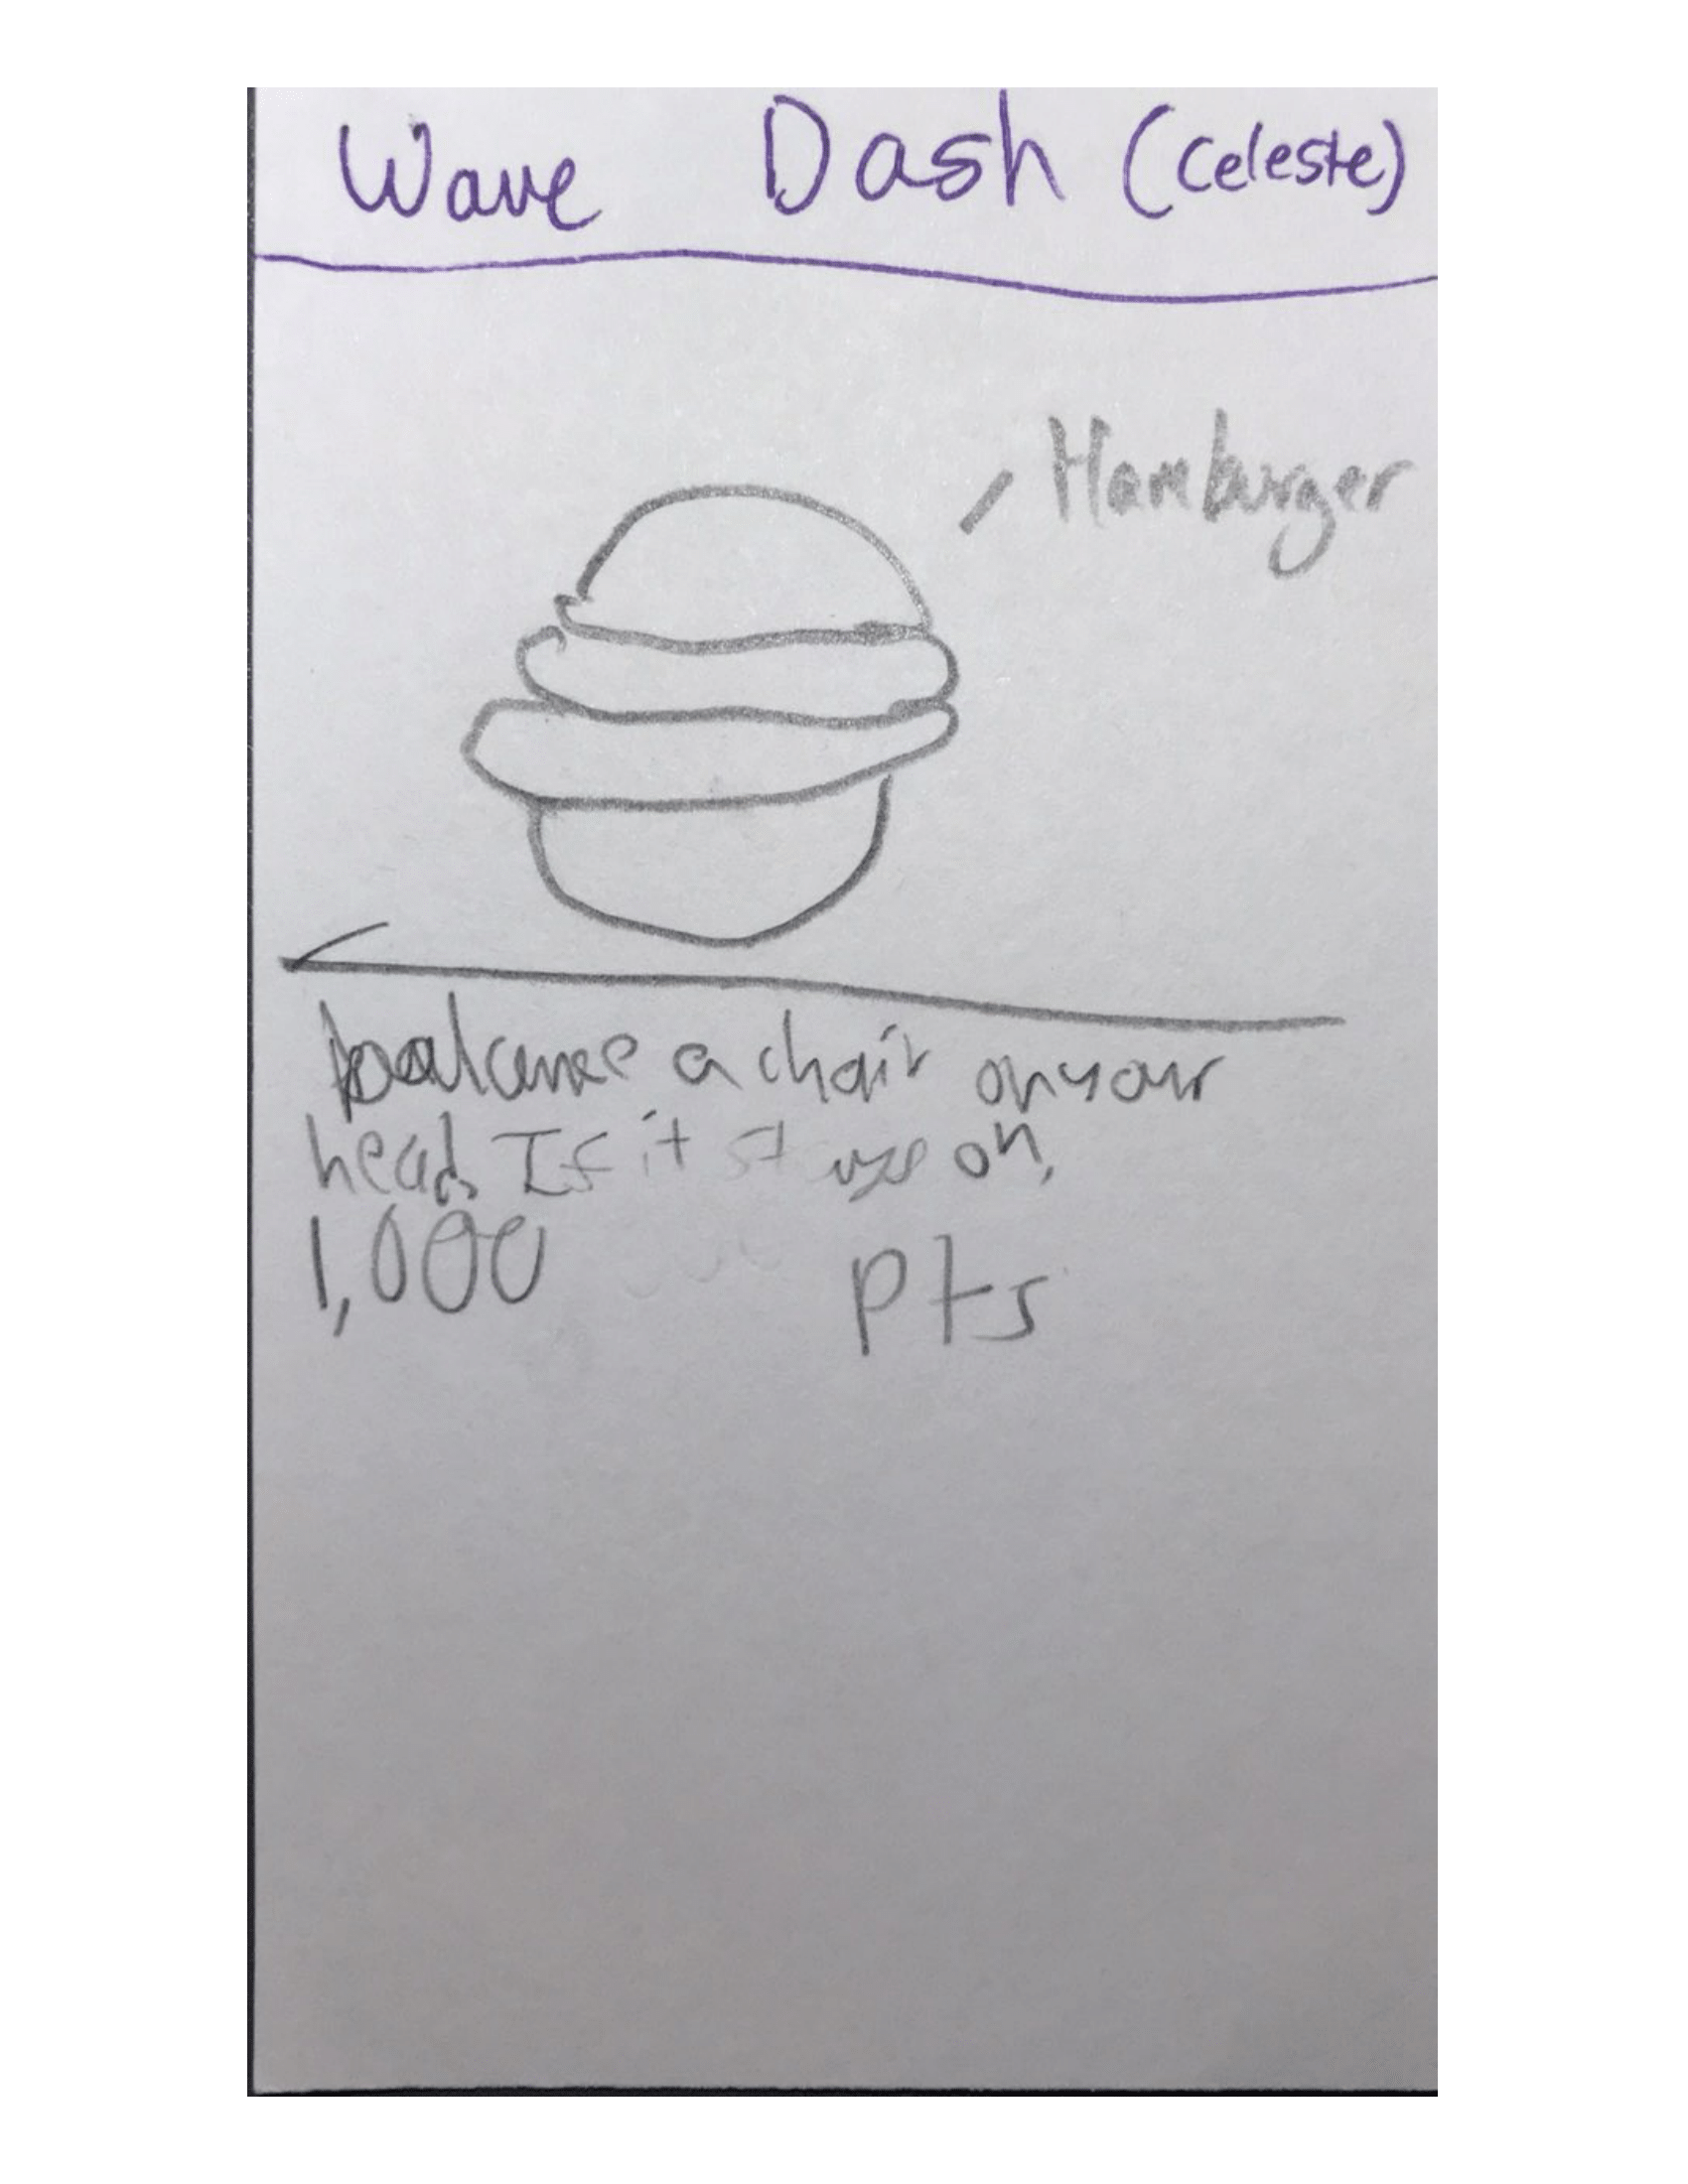 Wave Dash (Celeste)
Hamburger
balance a chair on your
head. If it stays on,
1,000 pts